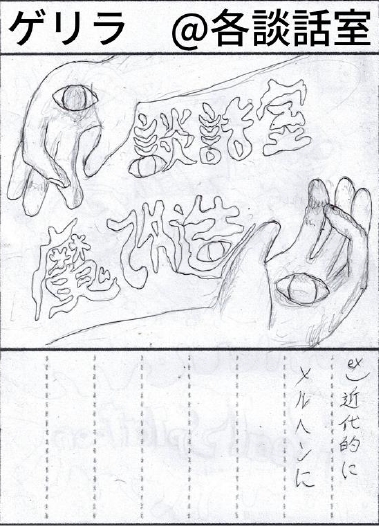 ゲリラ　@各談話室
談話室
魔改造
ex) 近代的に
メルヘンに